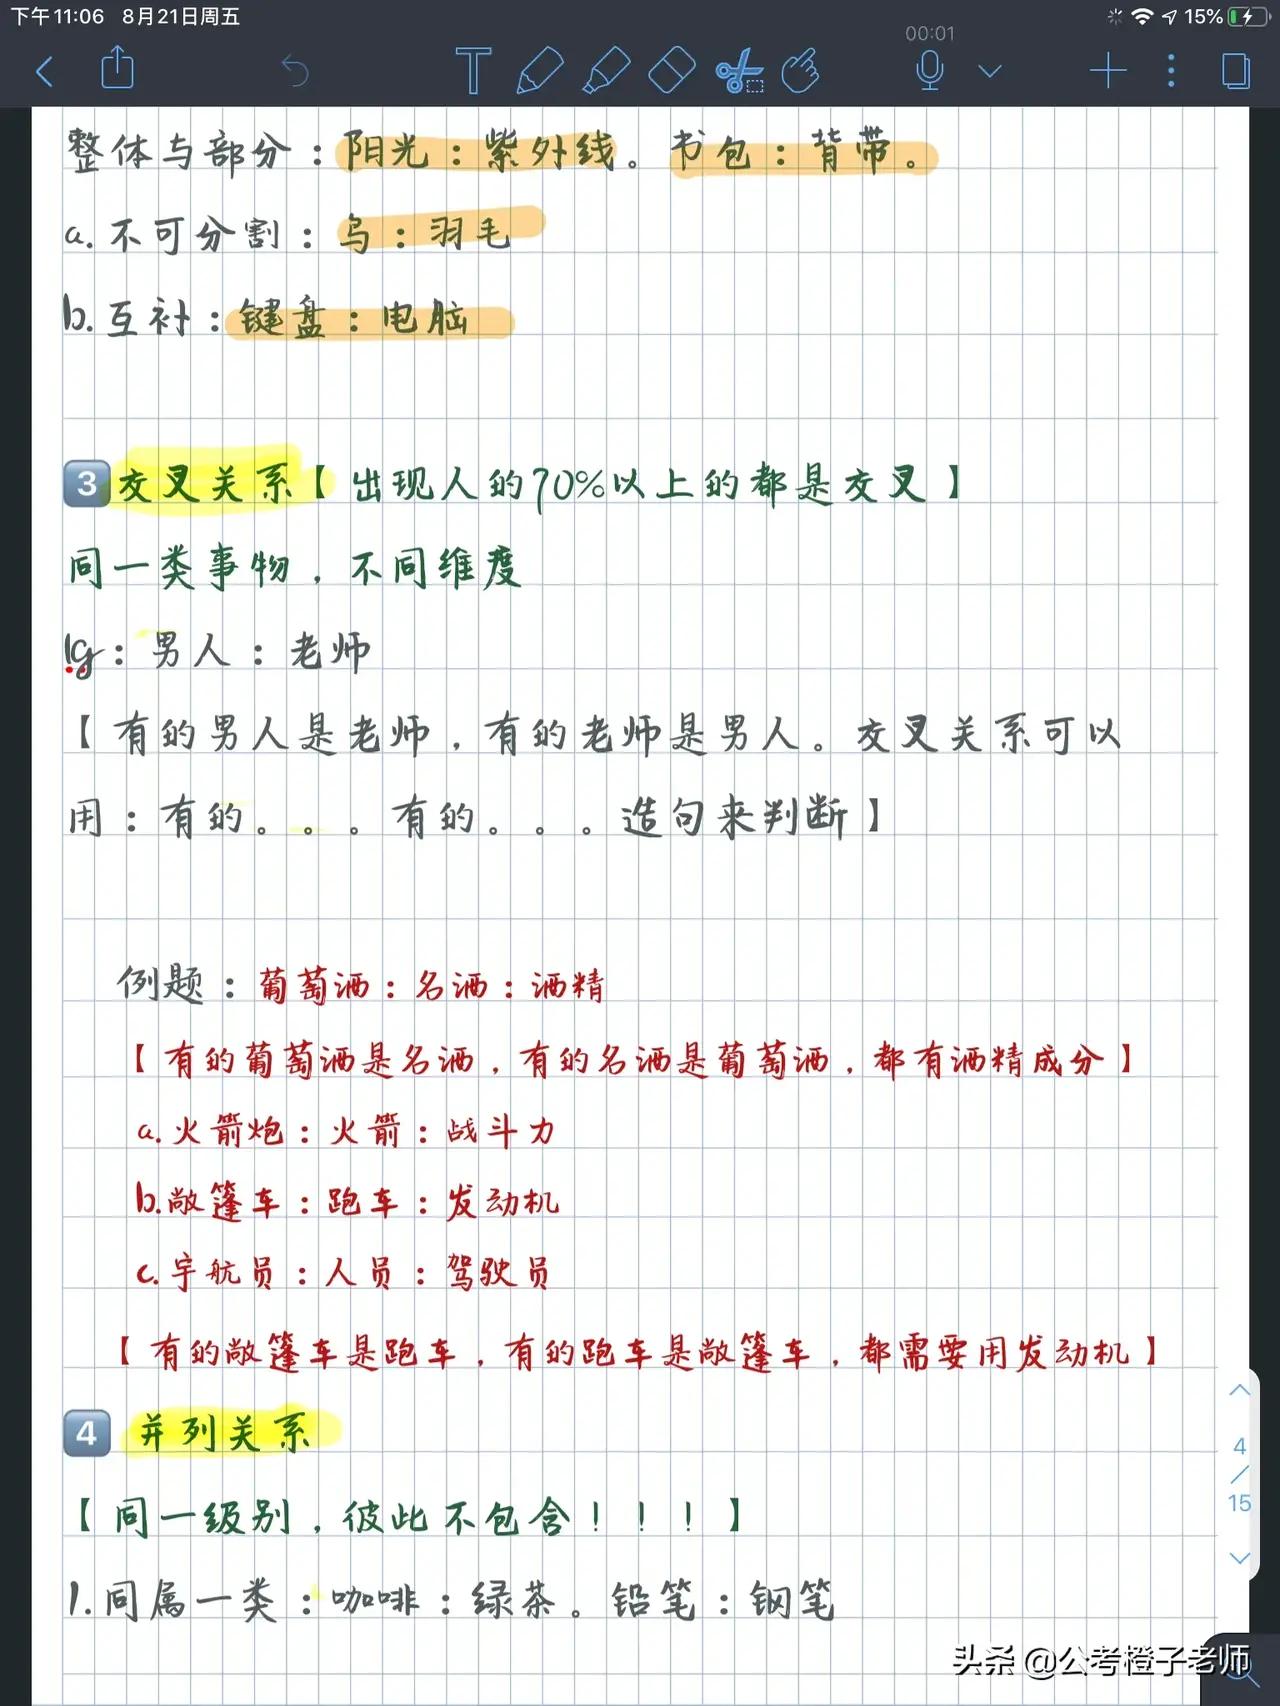 下午11:06 8月21日周五
15%
00:01
整体与部分：阳光：紫外线。书包：背带。
a.不可分割：鸟：羽毛
b.互补：键盘：电脑
3 交叉关系【出现人的70%以上的都是交叉】
同一类事物，不同维度
lg：男人：老师
【有的男人是老师，有的老师是男人。交叉关系可以
用：有的。。。有的。。。造句来判断】
例题：葡萄酒：名酒：酒精
【有的葡萄酒是名酒，有的名酒是葡萄酒，都有酒精成分】
a.火箭炮：火箭：战斗力
b.敞篷车：跑车：发动机
c.宇航员：人员：驾驶员
【有的敞篷车是跑车，有的跑车是敞篷车，都需要用发动机】
4 并列关系
【同一级别，彼此不包含！！！】
1.同属一类：咖啡：绿茶。铅笔：钢笔
4
/
15
头条 @公考橙子老师